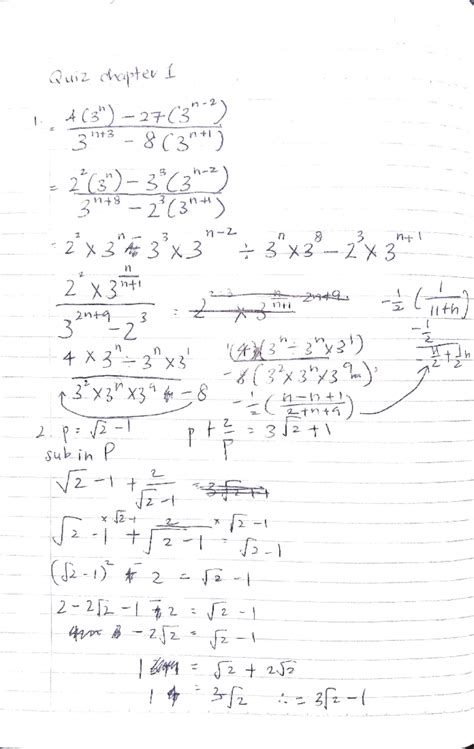 Quiz chapter 1
1. = 4(3^n) - 27(3^{n-2}) / 3^{n+3} - 8(3^{n+1})
= 2^2(3^n) - 3^3(3^{n-2}) / 3^{n+8} - 2^3(3^{n+1})
= 2^2 × 3^n 3^3 × 3^{n-2} ÷ 3^n × 3^8 - 2^3 × 3^{n+1}
2^2 × 3^{n/n+1} / 3^{2n+9} - 2^3 =
-1/2 (1 / 11+n)
4 × 3^n ÷ 3^n × 3^1 / 3^2 × 3^n × 3^9 - 8
(3^n ÷ 3^n × 3^1) / (3^2 × 3^n × 3^9)
-1/2 (n-n+1 / 2+n+9)
2. p = √2 - 1   p + 2/p = 3√2 + 1
sub in P
√2 - 1 + 2/√2-1
√2 - 1 + 2/√2-1 × √2 - 1 = √2 - 1
(√2-1)^2 2 = √2 - 1
2 - 2√2 - 1 2 = √2 - 1
- 2√2 = √2 - 1
1 = √2 + 2√2
1 = 3√2 ∴ = 3√2 - 1